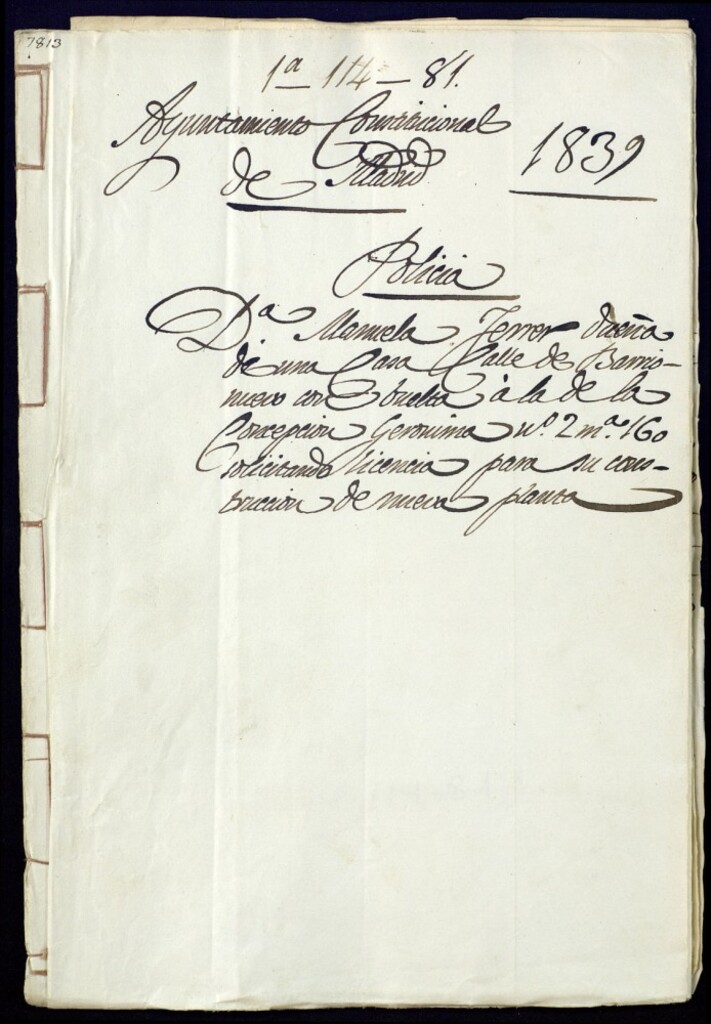 7813
1ª 114 - 81.
Ayuntamiento Constitucional
de Madrid
1839
Policia
Dª Manuela Ferrer dueña
de una Casa Calle de Barrio-
nuevo con vuelta à la de la
Concepcion Geronima nº. 2 mª. 160
solicitando licencia para su cons-
truccion de nueva planta